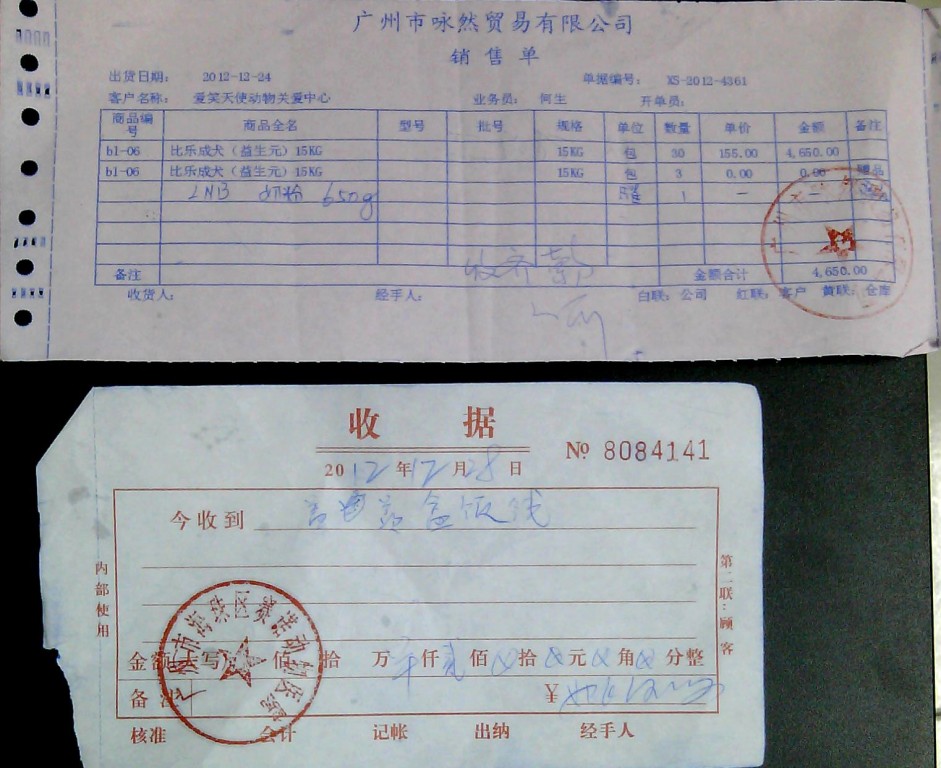 广州市咏然贸易有限公司
销售单
出货日期： 2012-12-24 单据编号： XS-2012-4361
客户名称： 爱笑天使动物关爱中心 业务员： 何生 开单员：
商品编号 商品全名 型号 批号 规格 单位 数量 单价 金额 备注
b1-06 比乐成犬（益生元）15KG 15KG 包 30 155.00 4,650.00
b1-06 比乐成犬（益生元）15KG 15KG 包 3 0.00 0.00 赠品
LNB 奶粉 650g 罐 1 —
备注 金额合计 4,650.00
收齐
收货人： 经手人： 白联：公司 红联：客户 黄联：仓库
收 据
2012年12月28日 № 8084141
今收到 盒饭钱
内部使用
第二联：顾客
金额大写 佰 拾 万 仟 佰 拾 元 角 分整
备注 ¥
广州市海珠区 动物医院
核准 会计 记帐 出纳 经手人